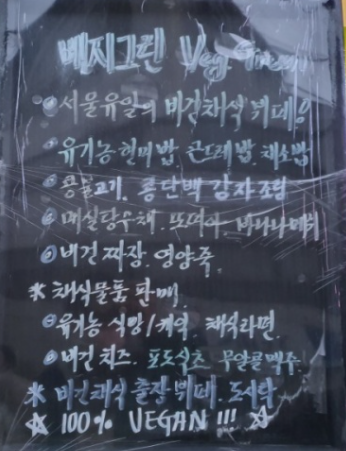 베지그린 Veg Green
서울유일의 비건채식 뷔페
유기농현미밥. 곤드레밥. 채소밥
콩불고기. 콩단백 감자조림
비건 짜장 영양죽.
* 채식물품 판매.
유기농 식빵/케익. 채식라면.
비건 치즈. 포도식초 무알콜맥주.
* 비건채식 출장뷔페. 도시락
☆ 100% VEGAN !!! ☆